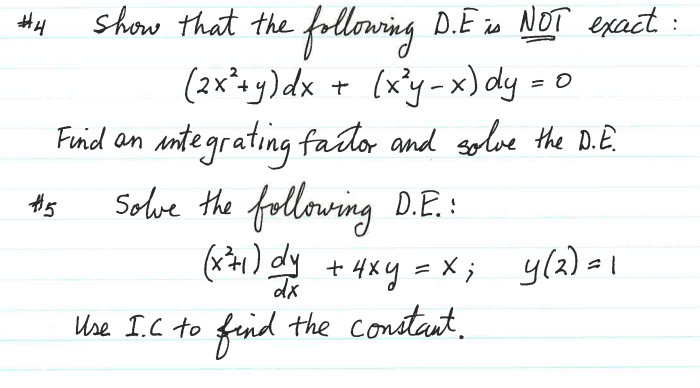 #4 Show that the following D.E is NOT exact :
(2x²+y)dx + (x²y-x)dy = 0
Find an integrating factor and solve the D.E.
#5 Solve the following D.E.:
(x²+1) dy/dx + 4xy = x ; y(2)=1
Use I.C to find the constant.